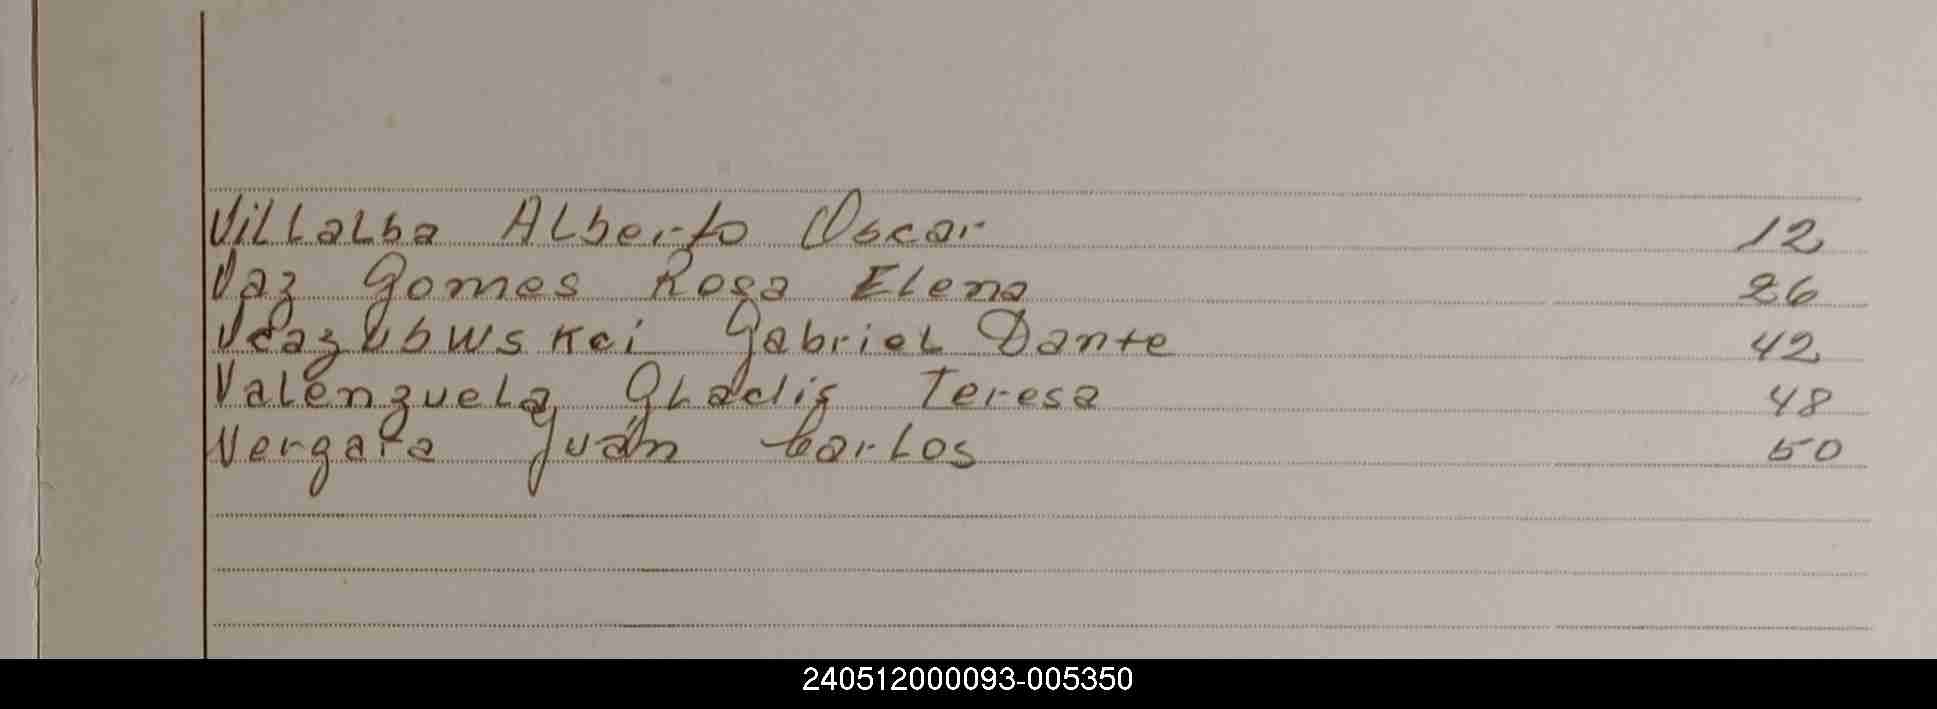 Villalba Alberto Oscar 12
Vaz Gomes Rosa Elena 26
Gabriel Dante 42
Valenzuela Gladis Teresa 48
Vergara Juan Carlos 50
240512000093-005350